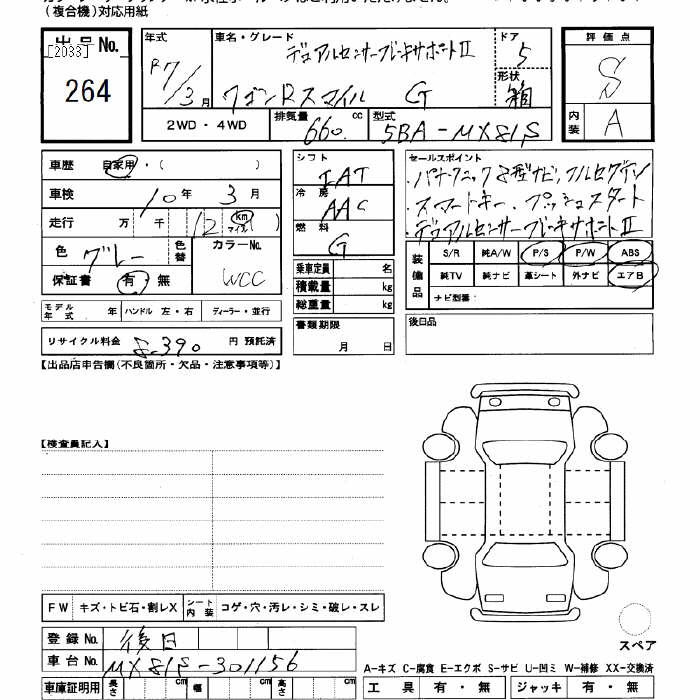 (複合機)対応用紙
出品No.
[2033]
264
年式 R7/3月
車名・グレード デュアルセンサーブレーキサポートⅡ
ワゴンRスマイル G
ドア 5
形状 箱
評価点 S
内装 A
2WD・4WD
排気量 660 cc
型式 5BA-MX81S
車歴 自家用・( )
車検 10年 3月
走行 万 千 12 km マイル
色 グレー
色替
カラーNo. WCC
保証書 有・無
モデル年式 年 ハンドル 左・右 ディーラー・並行
リサイクル料金 8,390 円 預託済
シフト IAT
冷房 AAC
燃料 G
乗車定員 名
積載量 kg
総重量 kg
書類期限
月 日
セールスポイント
・パナソニック8型ナビ,フルセグTV
・スマートキー、プッシュスタート
・デュアルセンサーブレーキサポートⅡ
装備品 S/R 純A/W P/S P/W ABS
純TV 純ナビ 革シート 外ナビ エアB
ナビ型番:
後日品
【出品店申告欄(不良箇所・欠品・注意事項等)】
【検査員記入】
FW キズ・トビ石・割レX シート内装 コゲ・穴・汚レ・シミ・破レ・スレ
登録No. 後日
車台No. MX81S-301156
車庫証明用 長さ cm 幅 cm 高さ cm
スペア
A-キズ C-腐食 E-エクボ S-サビ U-凹ミ W-補修 XX-交換済
工具 有・無 ジャッキ 有・無